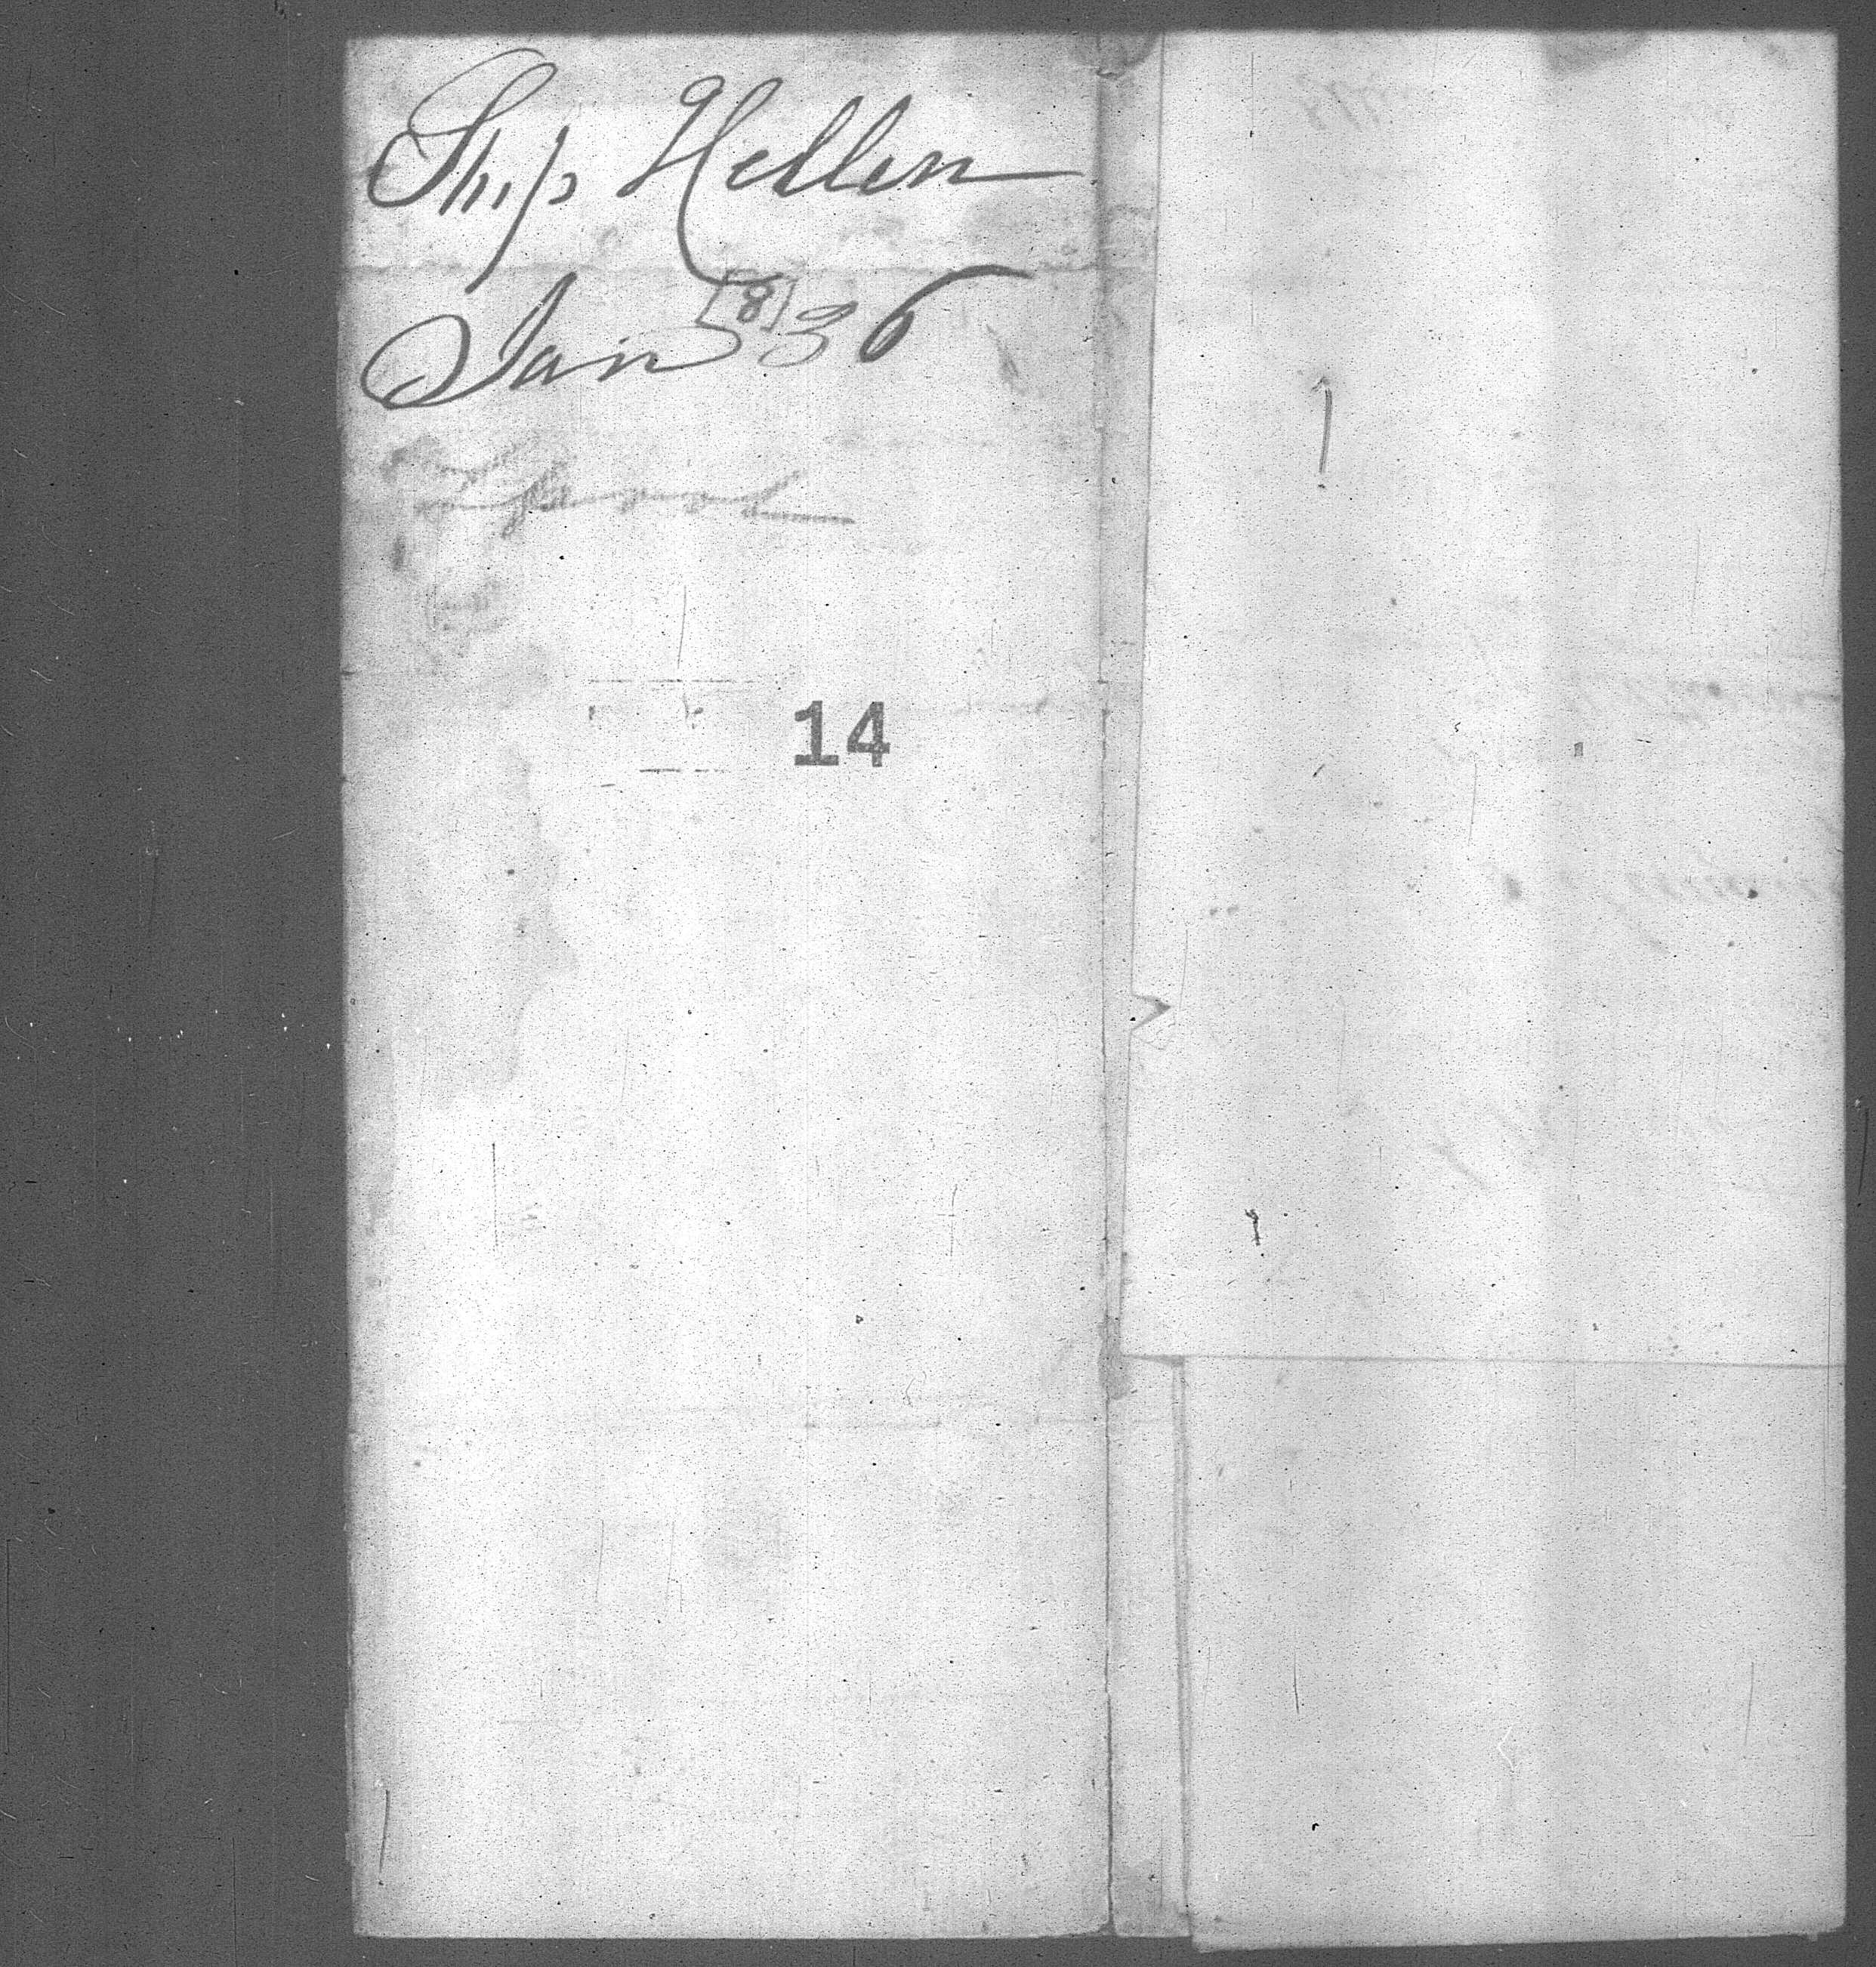 Ship Hellen
Jan [8] 36
14